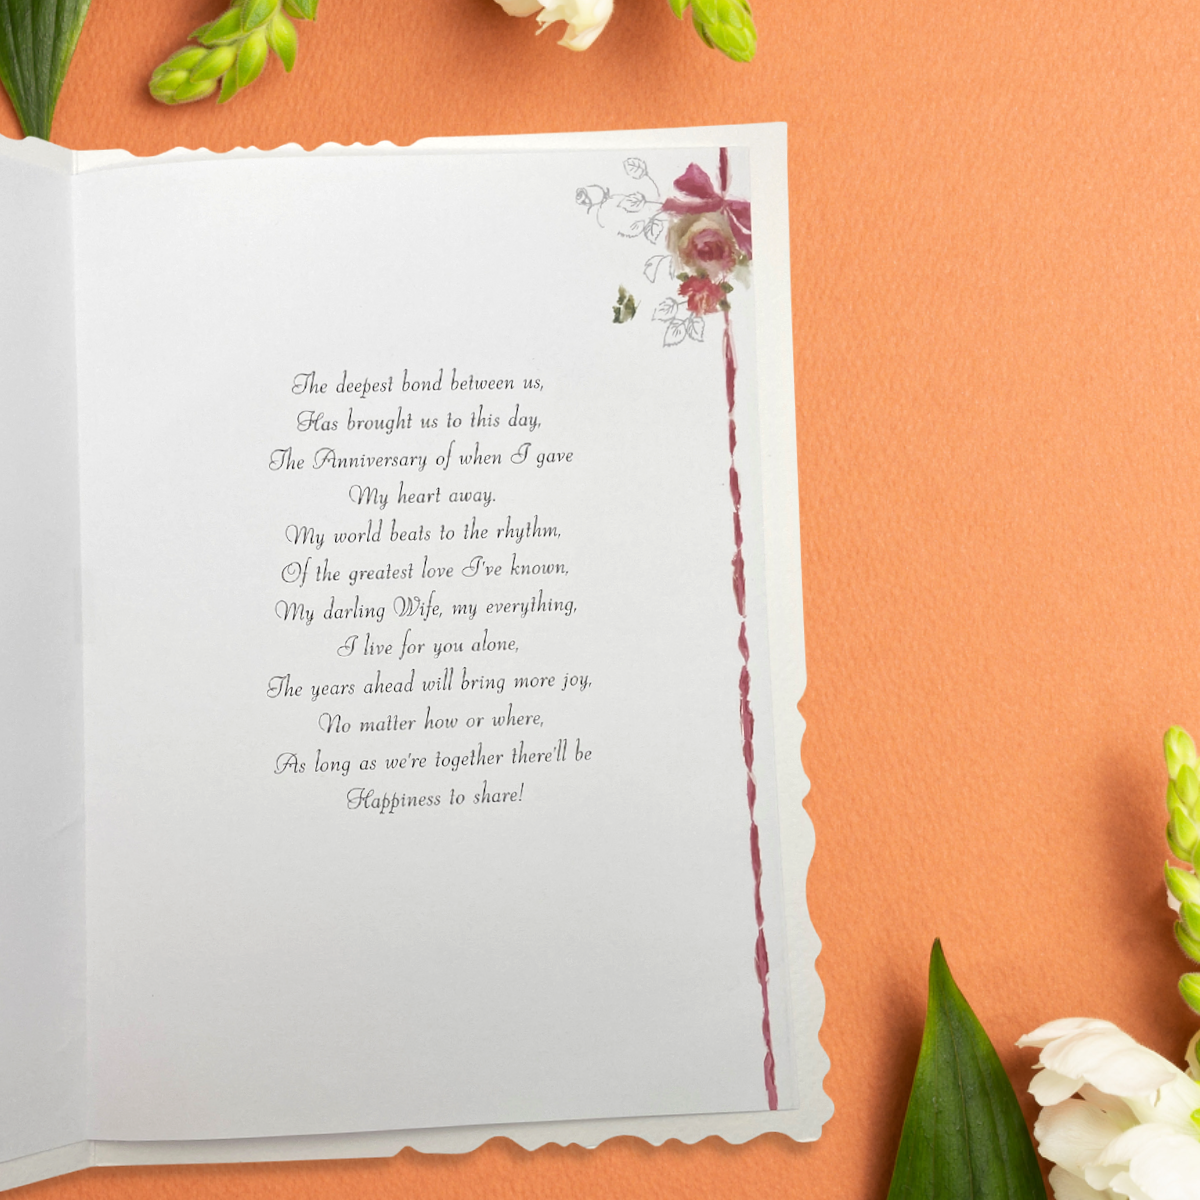 The deepest bond between us,
Has brought us to this day,
The Anniversary of when I gave
My heart away.
My world beats to the rhythm,
Of the greatest love I've known,
My darling Wife, my everything,
I live for you alone,
The years ahead will bring more joy,
No matter how or where,
As long as we're together there'll be
Happiness to share!